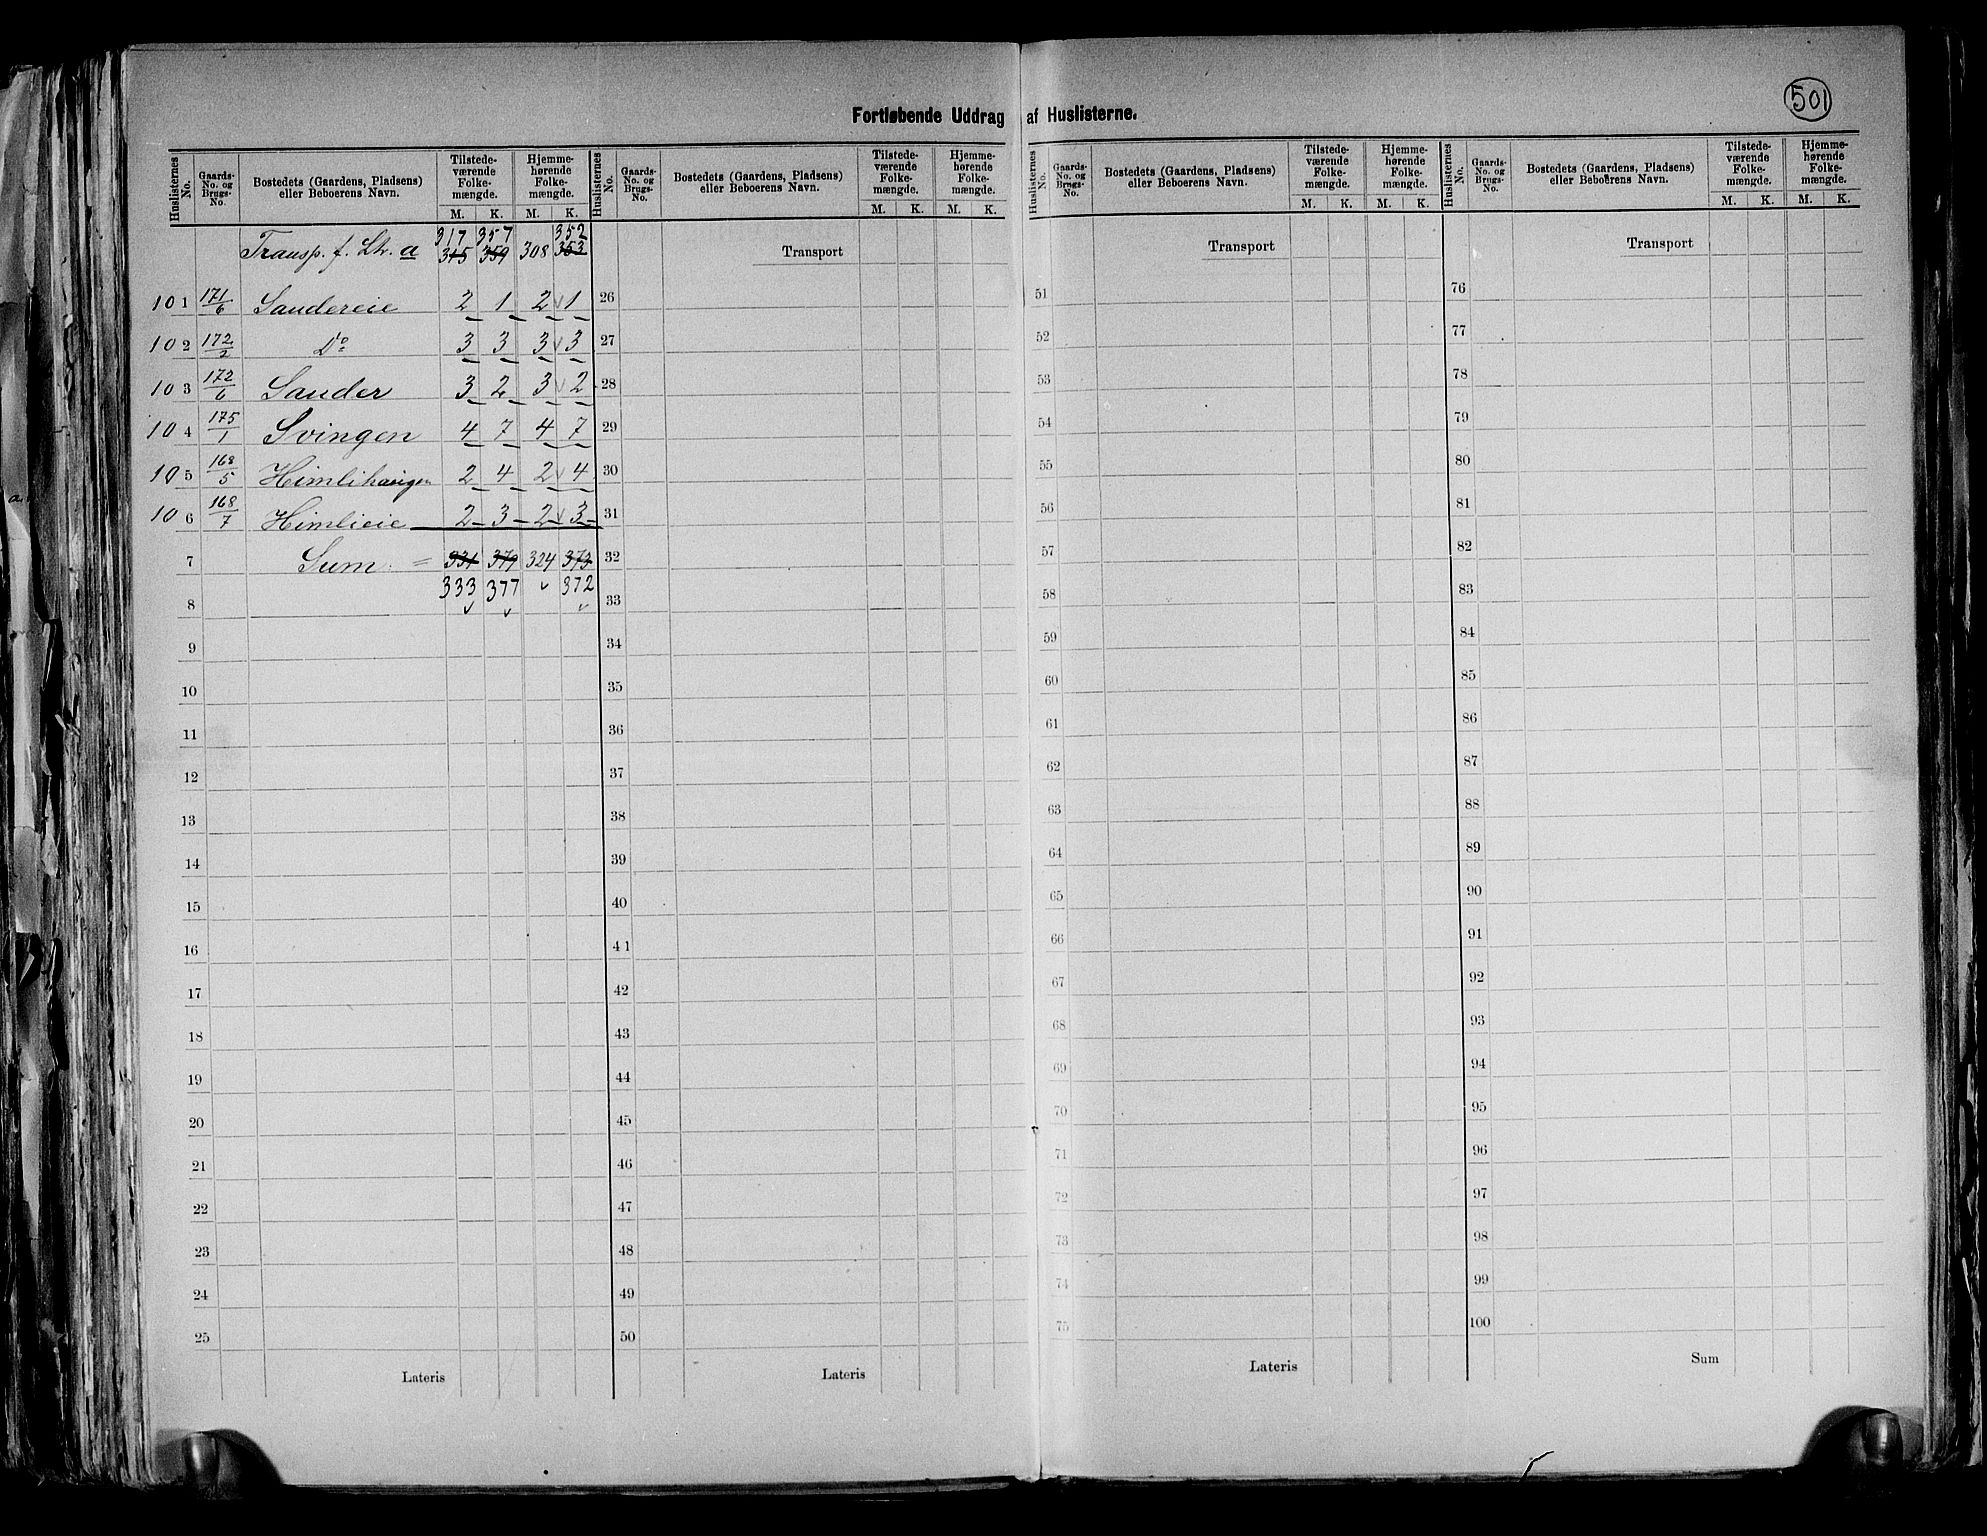 501
Fortløbende Uddrag af Huslisterne.
Huslisternes No. | Gaards-No. og Brugs-No. | Bostedets (Gaardens, Pladsens) eller Beboerens Navn. | Tilstedeværende Folkemængde. M. K. | Hjemmehørende Folkemængde. M. K.
317 357 352
Transp. f. Lit. a 315 359 308 353
101 171/6 Sandereie 2 1 2 1
102 172/2 Do 3 3 3 3
103 172/6 Sander 3 2 3 2
104 175/1 Svingen 4 7 4 7
105 168/5 Himlihaugen 2 4 2 4
106 168/7 Himlieie 2 3 2 3
7 Sum = 331 379 324 373
333 377 372
8
9
10
11
12
13
14
15
16
17
18
19
20
21
22
23
24
25
Lateris
Huslisternes No. | Gaards-No. og Brugs-No. | Bostedets (Gaardens, Pladsens) eller Beboerens Navn. | Tilstedeværende Folkemængde. M. K. | Hjemmehørende Folkemængde. M. K.
Transport
26
27
28
29
30
31
32
33
34
35
36
37
38
39
40
41
42
43
44
45
46
47
48
49
50
Lateris
Huslisternes No. | Gaards-No. og Brugs-No. | Bostedets (Gaardens, Pladsens) eller Beboerens Navn. | Tilstedeværende Folkemængde. M. K. | Hjemmehørende Folkemængde. M. K.
Transport
51
52
53
54
55
56
57
58
59
60
61
62
63
64
65
66
67
68
69
70
71
72
73
74
75
Lateris
Huslisternes No. | Gaards-No. og Brugs-No. | Bostedets (Gaardens, Pladsens) eller Beboerens Navn. | Tilstedeværende Folkemængde. M. K. | Hjemmehørende Folkemængde. M. K.
Transport
76
77
78
79
80
81
82
83
84
85
86
87
88
89
90
91
92
93
94
95
96
97
98
99
100
Sum